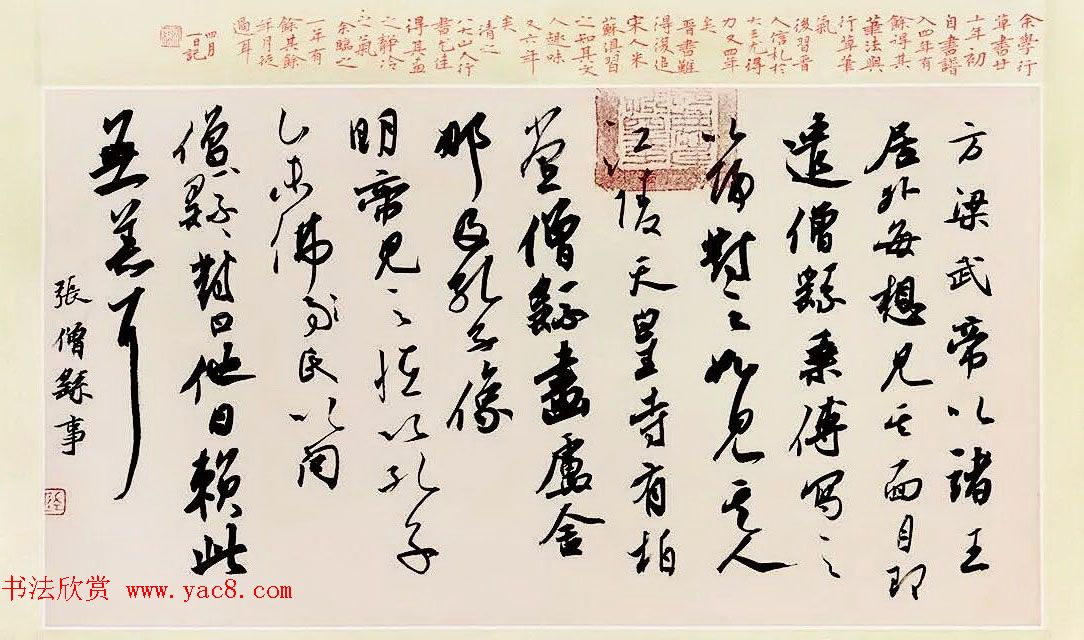 余學行
草書廿
十年初
自書譜
入四年有
餘得其
筆法與
行草筆
氣
後習晋
人信札於
大王尤得
力又四年
矣
晋書雖
得後追
宋人米
蘇俱習
之知其文
人趣味
又六年
矣
清之
八大山人行
書
得其画
之靜冷
之氣
余臨之
一年有
餘其餘
年月從
過耳
四月
一日記
方梁武帝以諸王
居外每想見其面目即
遣僧繇乘傳寫之
以歸對之如見其人
江陵天皇寺有柏
堂僧繇畫盧舍
那及孔子像
明帝見之怪以孔子
佛家民以問
僧繇對曰他日賴此
無恙耳
張僧繇事
书法欣赏 www.yac8.com